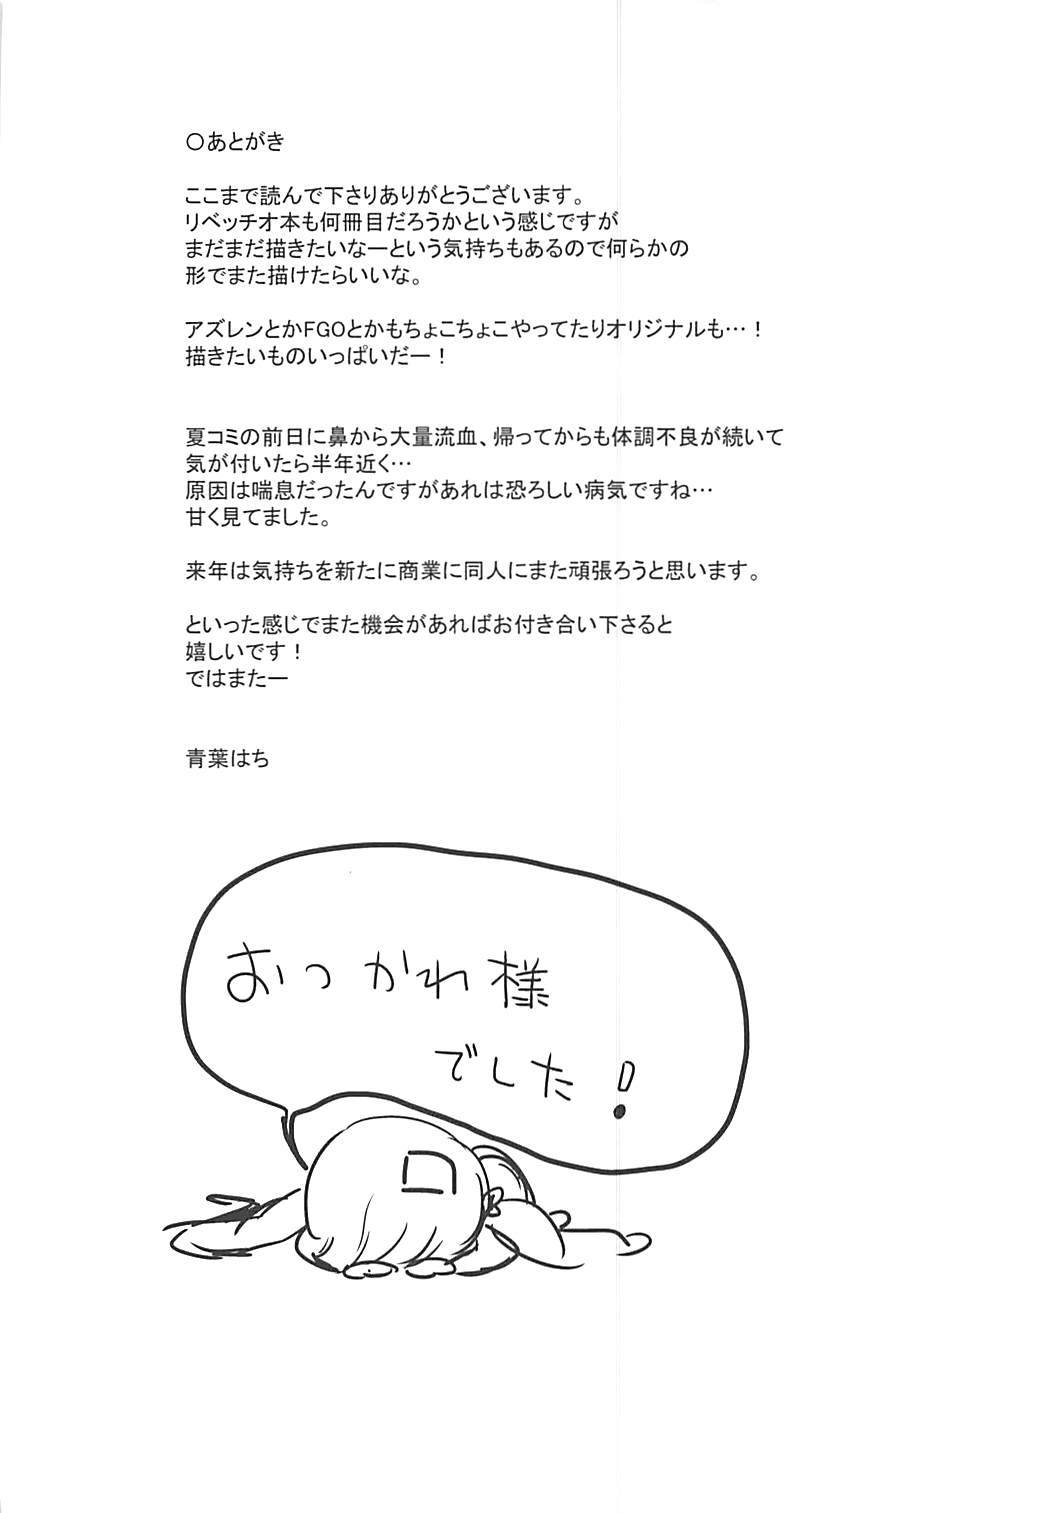 〇あとがき
ここまで読んで下さりありがとうございます。
リベッチオ本も何冊目だろうかという感じですが
まだまだ描きたいなーという気持ちもあるので何らかの
形でまた描けたらいいな。
アズレンとかFGOとかもちょこちょこやってたりオリジナルも…！
描きたいものいっぱいだー！
夏コミの前日に鼻から大量流血、帰ってからも体調不良が続いて
気が付いたら半年近く…
原因は喘息だったんですがあれは恐ろしい病気ですね…
甘く見てました。
来年は気持ちを新たに商業に同人にまた頑張ろうと思います。
といった感じでまた機会があればお付き合い下さると
嬉しいです！
ではまたー
青葉はち
おつかれ様
でした！